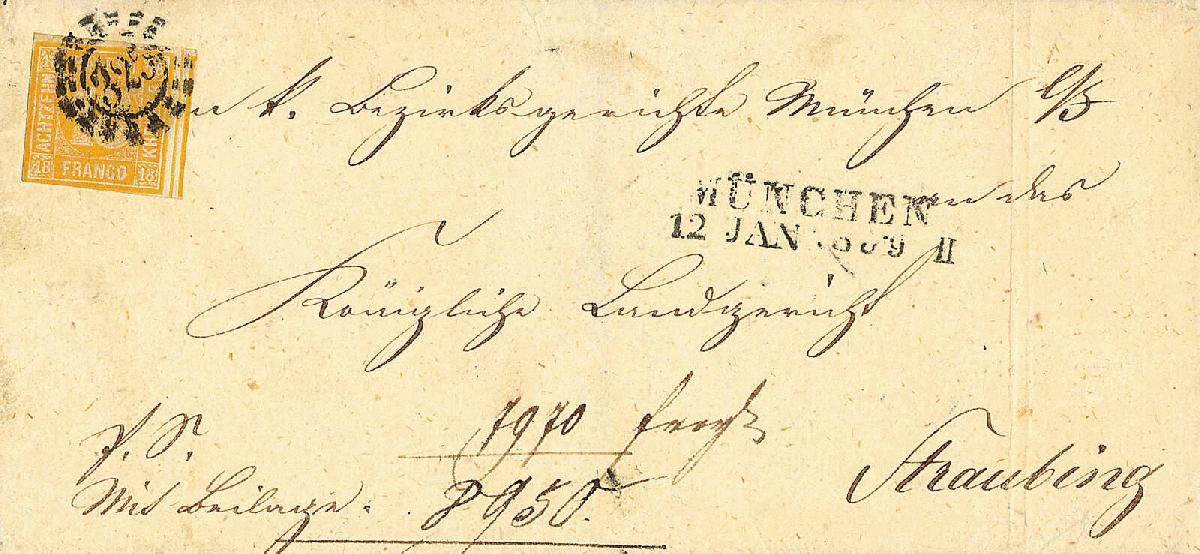 ACHTZEHN
18 FRANCO 18
n k. Bezirksgerichte München l/I
an das
MÜNCHEN
12 JAN II
Königliche Landgericht
P. S. 7970
Straubing
Mit Beilage. 950.